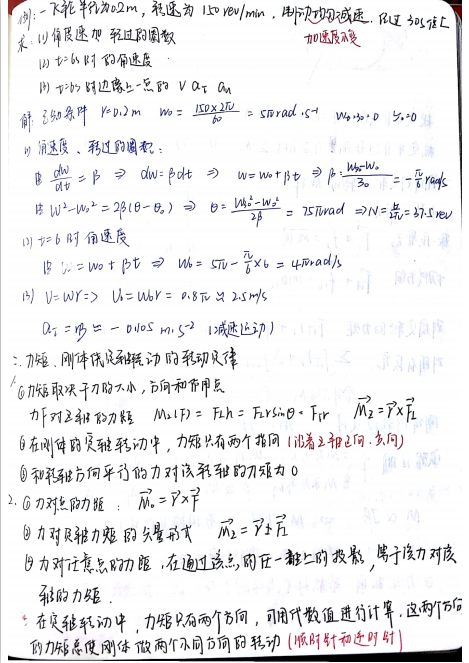 例:一飞轮半径为0.2m,转速为150rev/min,制动均匀减速,经过30s停止
加速度不变
求:(1) 角度速加 转过的圈数
(2) t=6s 时的角速度
(3) t=6s 时边缘上一点的 v aτ an
解: 已知条件 r=0.2m ω₀ = 150×2π/60 = 5π rad·s⁻¹ ω₃₀=0 θ₀=0
(1) 角速度、转过的圈数:
由 dω/dt = β ⇒ dω=βdt ⇒ ω=ω₀+βt ⇒ β= (ω₃₀-ω₀)/30 = -π/6 rad/s
由 ω²-ω₀² = 2β(θ-θ₀) ⇒ θ= (ω₃₀²-ω₀²)/2β = 75π rad ⇒ N= θ/2π = 37.5 rev
(2) t=6 时 角速度
由 ω=ω₀+βt ⇒ ω₆ = 5π - π/6 ×6 = 4π rad/s
(3) V=ωr ⇒ V₆=ω₆r = 0.8π ≈ 2.5m/s
aτ = rβ ≈ -0.105 m·s⁻² (减速运动)
二. 力矩. 刚体绕定轴转动的转动定律
① 力矩取决于力的大小,方向和作用点
力F对Z轴的力矩 Mz(F) = F⊥h = F⊥r sinθ = Fτr M⃗z = r⃗×F⃗⊥
② 在刚体的定轴转动中,力矩只有两个指向(沿着Z轴正向、负向)
③ 和转轴方向平行的力对该转轴的力矩为0
2. ① 力对点的力矩: M⃗₀ = r⃗×F⃗
② 力对定轴力矩的矢量形式 M⃗z = r⃗×F⃗⊥
③ 力对任意点的力矩,在通过该点的任一轴上的投影,等于该力对该
轴的力矩.
在定轴转动中,力矩只有两个方向,可用代数值进行计算.这两个方向
的力矩总使刚体做两个不同方向的转动(顺时针和逆时针)